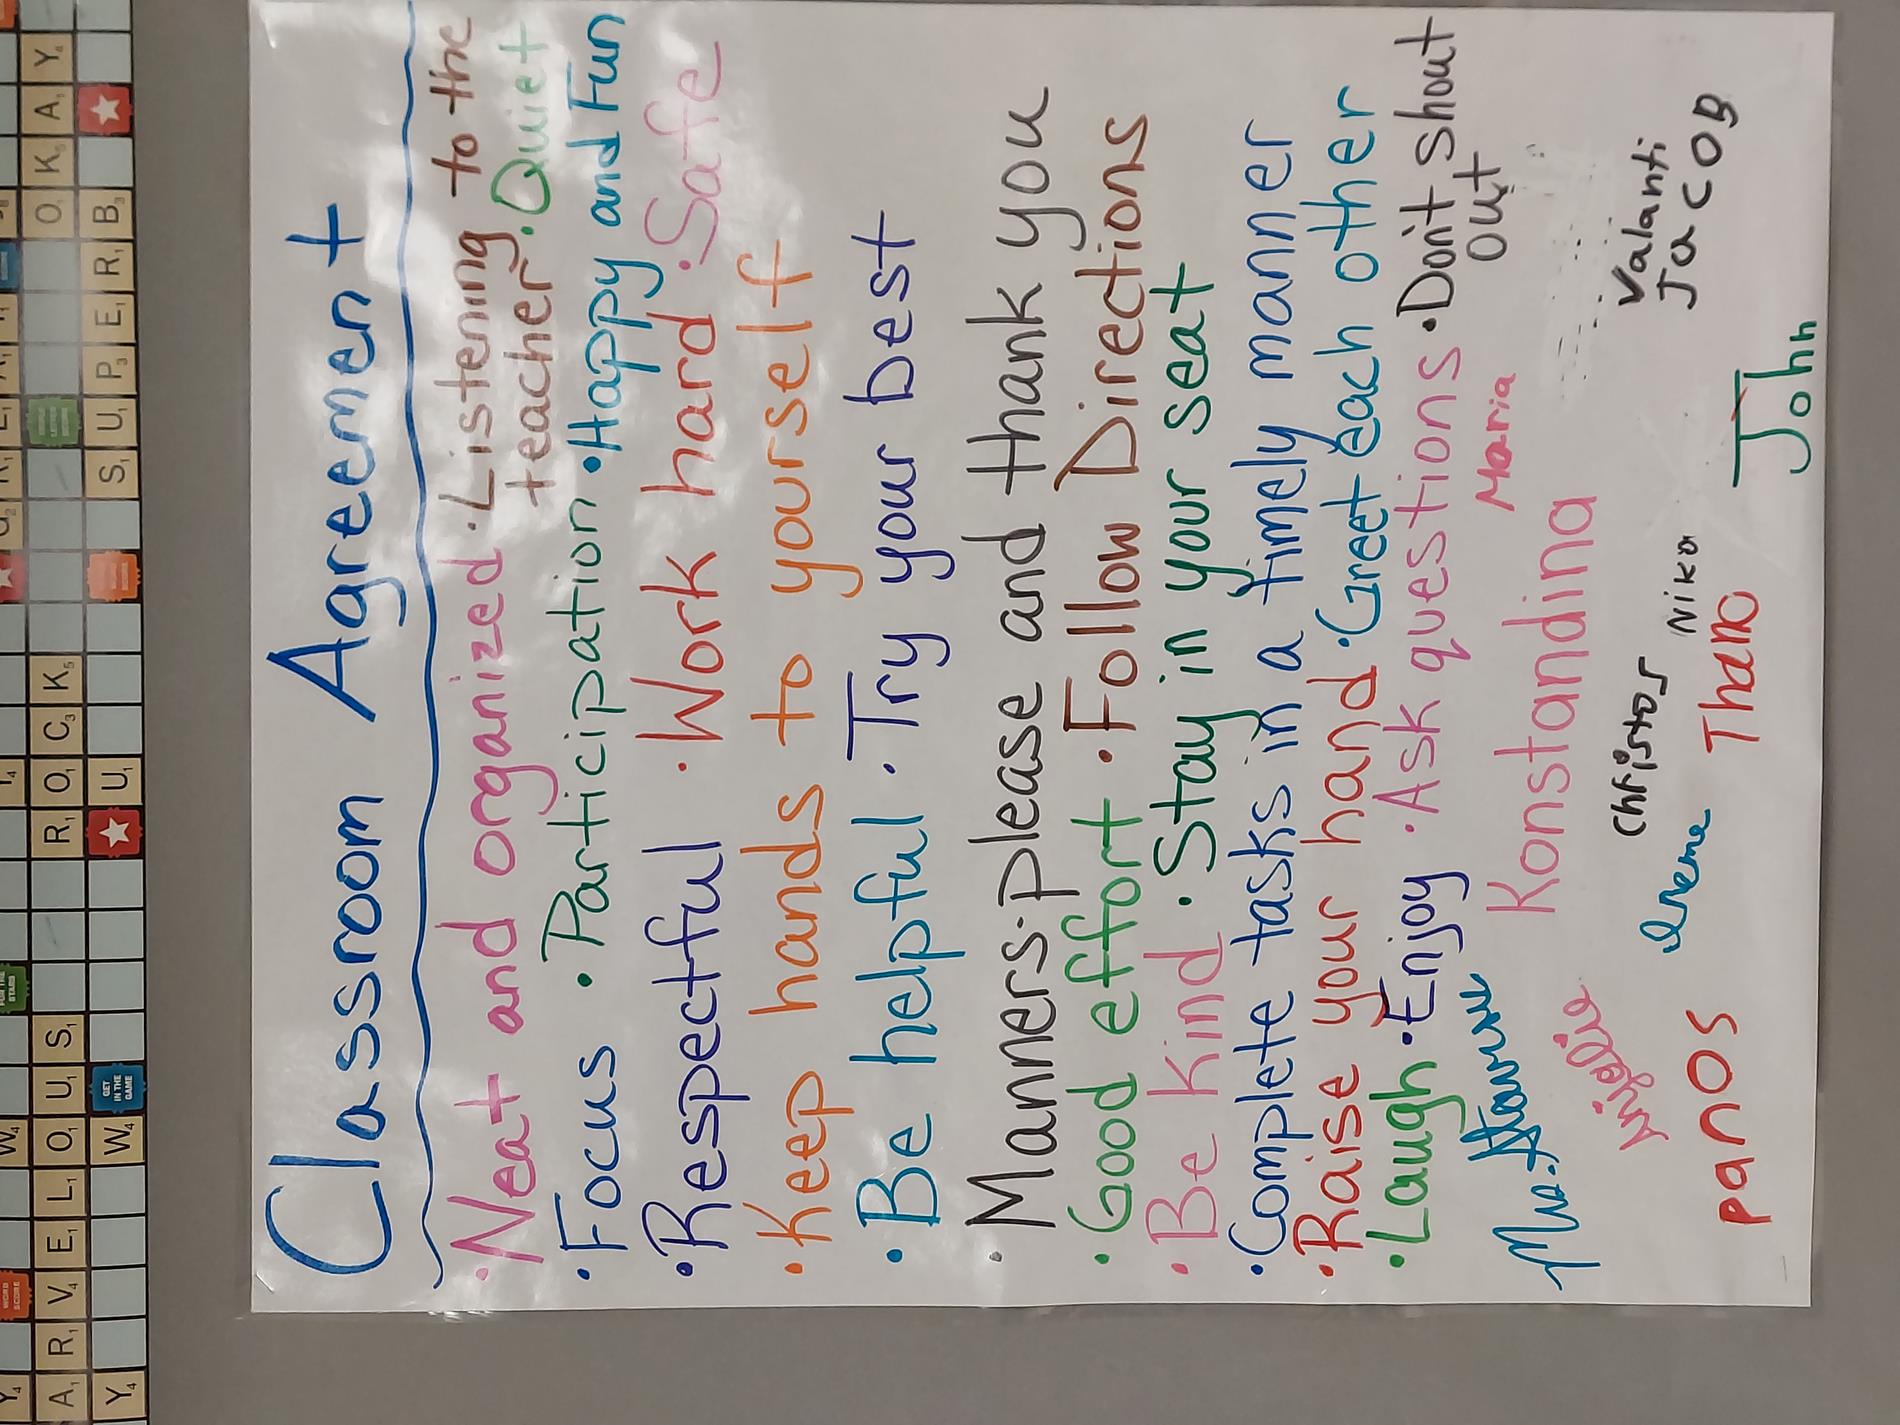 ARVELOUS ROCK OKAY
Y W GET IN THE GAME U WORD SCORE SUPERB
Classroom Agreement
·Neat and organized ·Listening to the
teacher ·Quiet
·Focus ·Participation ·Happy and Fun
·Respectful ·Work hard ·Safe
·Keep hands to yourself
·Be helpful ·Try your best
·Manners-please and thank you
·Good effort ·Follow Directions
·Be kind ·Stay in your seat
·Complete tasks in a timely manner
·Raise your hand ·Greet each other
·Laugh ·Enjoy ·Ask questions ·Don't shout
out
Mrs. Stavrou Konstandina Maria
Anjolie Christos Valanti
Irene Niko Jacob
Panos Thano
John